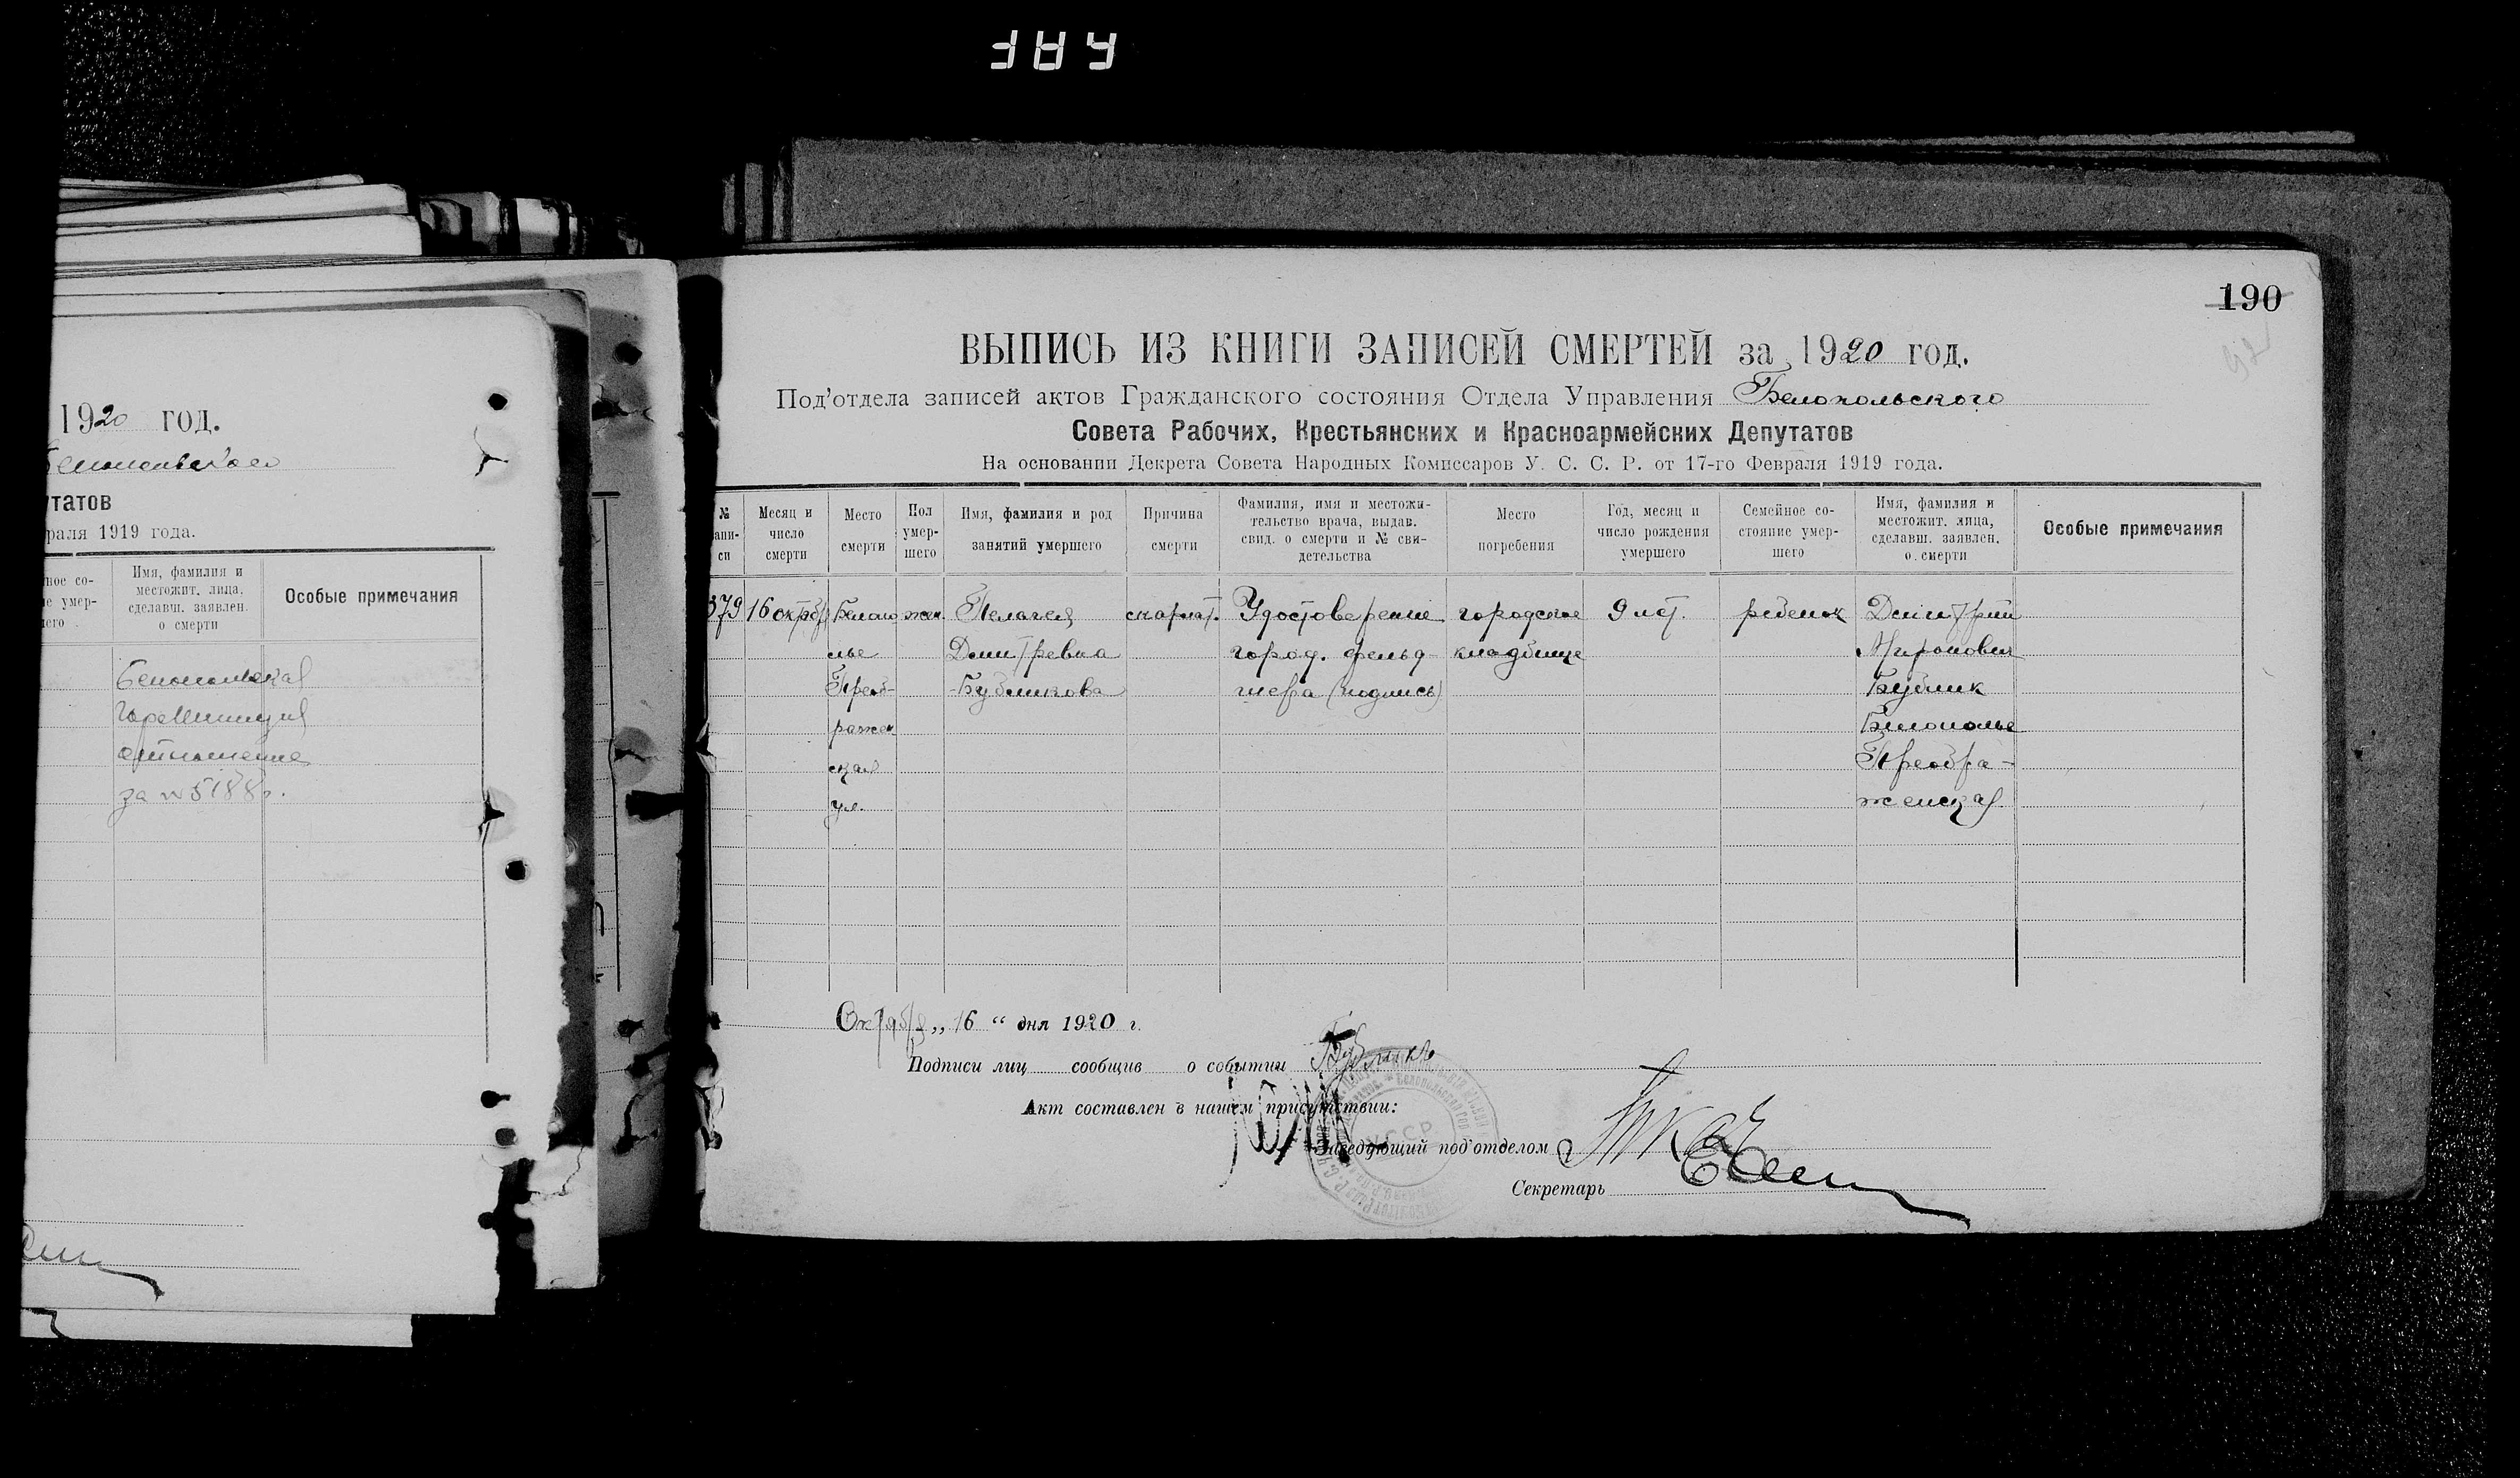 190
ВЫПИСЬ ИЗ КНИГИ ЗАПИСЕЙ СМЕРТЕЙ за 1920 год.
Под'отдела записей актов Гражданского состояния Отдела Управления Белопольского
Совета Рабочих, Крестьянских и Красноармейских Депутатов
На основании Декрета Совета Народных Комиссаров У. С. С. Р. от 17-го Февраля 1919 года.
№ апи-си
Месяц и число смерти
Место смерти
Пол умер-шего
Имя, фамилия и род занятий умершего
Причина смерти
Фамилия, имя и местожи-тельство врача, выдав. свид. о смерти и № сви-детельства
Место погребения
Год, месяц и число рождения умершего
Семейное со-стояние умер-шего
Имя, фамилия и местожит. лица, сделавш. заявлен. о смерти
Особые примечания
379 16 октяб Белопо жен. Пелагея скарлат. Удостоверение городское 9 лет. ребенок Дмитрий
лье Дмитревна город. фельд- кладбище Миронович
Преоб- Бубликова шера (подпись) Бублик
ражен Белополье
ская Преобра-
ул. женская
Октября „ 16 “ дня 1920 г.
Подписи лиц сообщив о событии Бублик
Акт составлен в нашем присутствии:
Заведующий под'отделом Ткач
Секретарь
1920 год.
татов
раля 1919 года.
ное со-
е умер-
его
Имя, фамилия и
местожит. лица,
сделавш. заявлен.
о смерти
Особые примечания
Белопольская
отношение
за № 5188